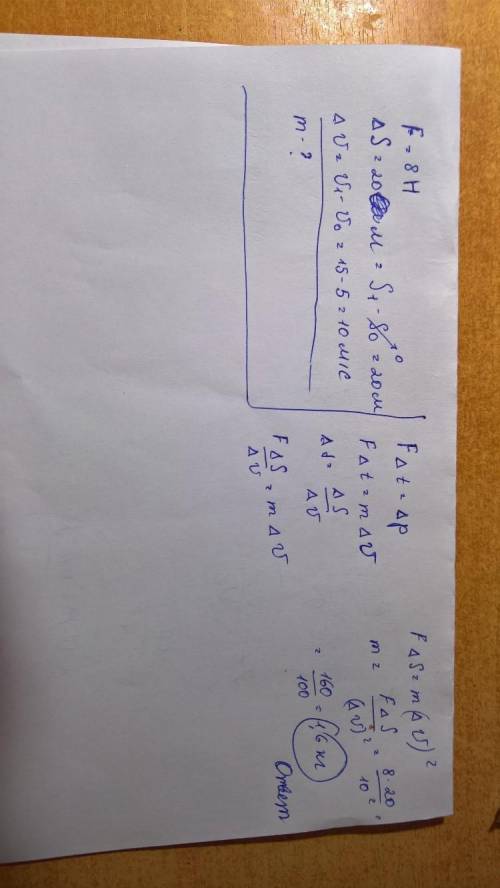 F = 8 Н
ΔS = 20 м = S₁ - S₀→0 = 20м
Δv = v₁ - v₀ = 15 - 5 = 10 м/с
m - ?
FΔt = Δp
FΔt = mΔv
Δt = ΔS/Δv
FΔS/Δv = mΔv
FΔS = m(Δv)²
m = FΔS/(Δv)² = 8·20/10² =
= 160/100 = 1,6 кг
Ответ